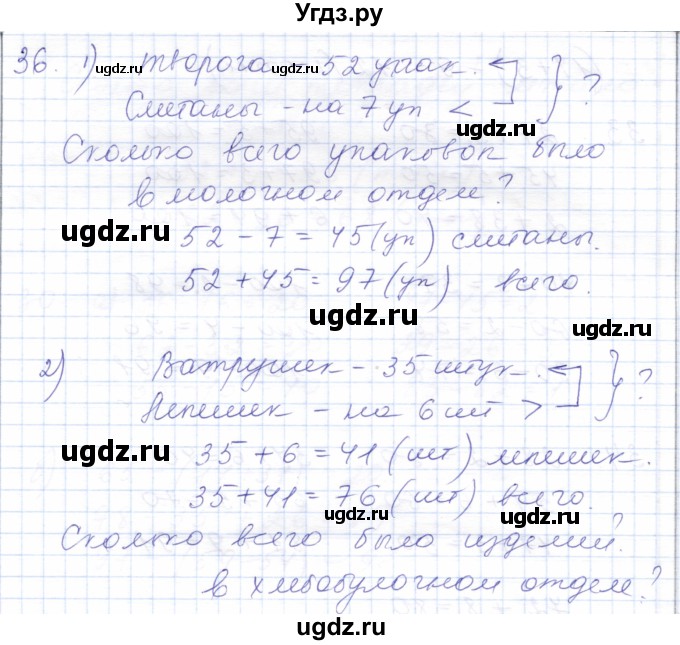 Угдз.ру
36. 1) Творога – 52 упак.
Сметаны – на 7 уп < } ?
Сколько всего упаковок было
в молочном отделе?
52 – 7 = 45 (уп) сметаны.
52 + 45 = 97 (уп) всего.
2) Ватрушек – 35 штук.
Лепешек – на 6 шт > } ?
35 + 6 = 41 (шт) лепешек.
35 + 41 = 76 (шт) всего.
Сколько всего было изделий?
в хлебобулочном отделе?
ugdz.ru
ugdz.ru
ugdz.ru
ugdz.ru
ugdz.ru
ugdz.ru
ugdz.ru
ugdz.ru
ugdz.ru
ugdz.ru
ugdz.ru
ugdz.ru